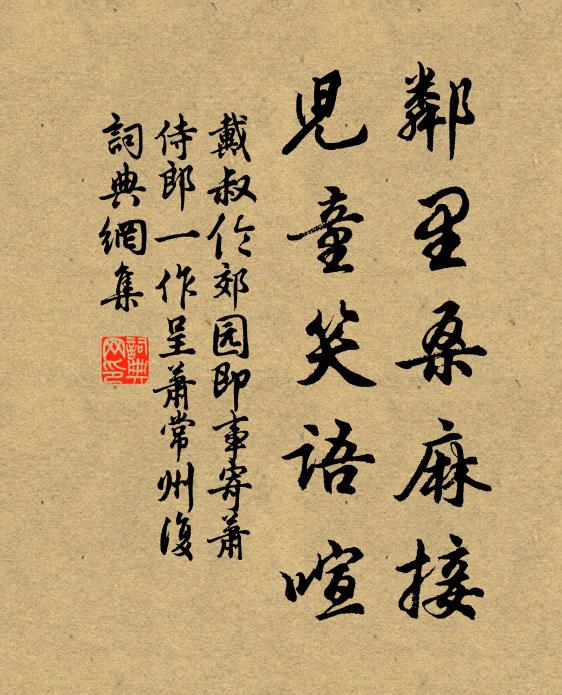 鄰里桑麻接
兒童笑語喧
戴叔伦郊园即事寄蕭
侍郎一作呈蕭常州復
詞典網集
詞典
网印